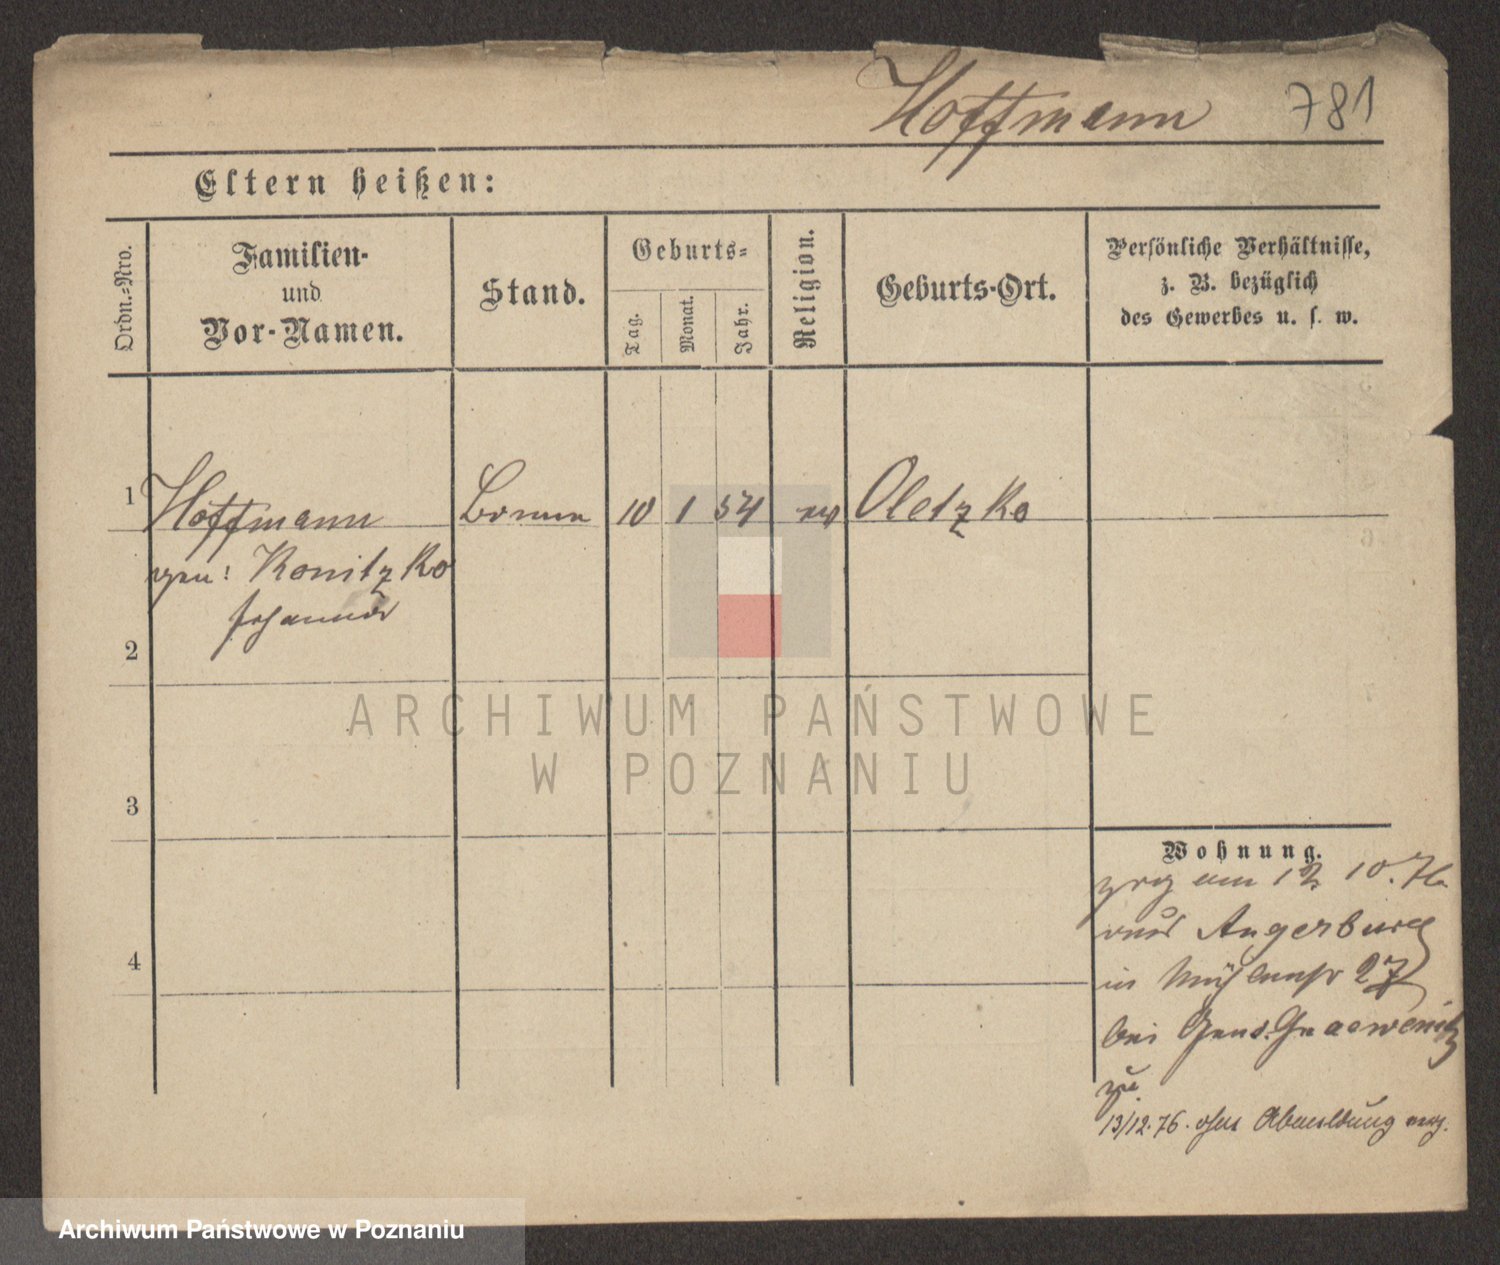 Hoffmann 781
Eltern heißen:
Ordn.-Nro.
Familien-
und
Vor-Namen.
Stand.
Geburts-
Tag.
Monat.
Jahr.
Religion.
Geburts-Ort.
Persönliche Verhältnisse,
z. B. bezüglich
des Gewerbes u. s. w.
1 Hoffmann 10 1 54 ev Oletzko
gen: Konitzko
Johanna
2
3
4
ARCHIWUM PAŃSTWOWE
W POZNANIU
Wohnung.
zog am 12 10. 76
aus Angerburg
in Mühlenstr 27
bei Gend. Graewenitz
zu.
13/12. 76. ohne Abmeldung verz.
Archiwum Państwowe w Poznaniu